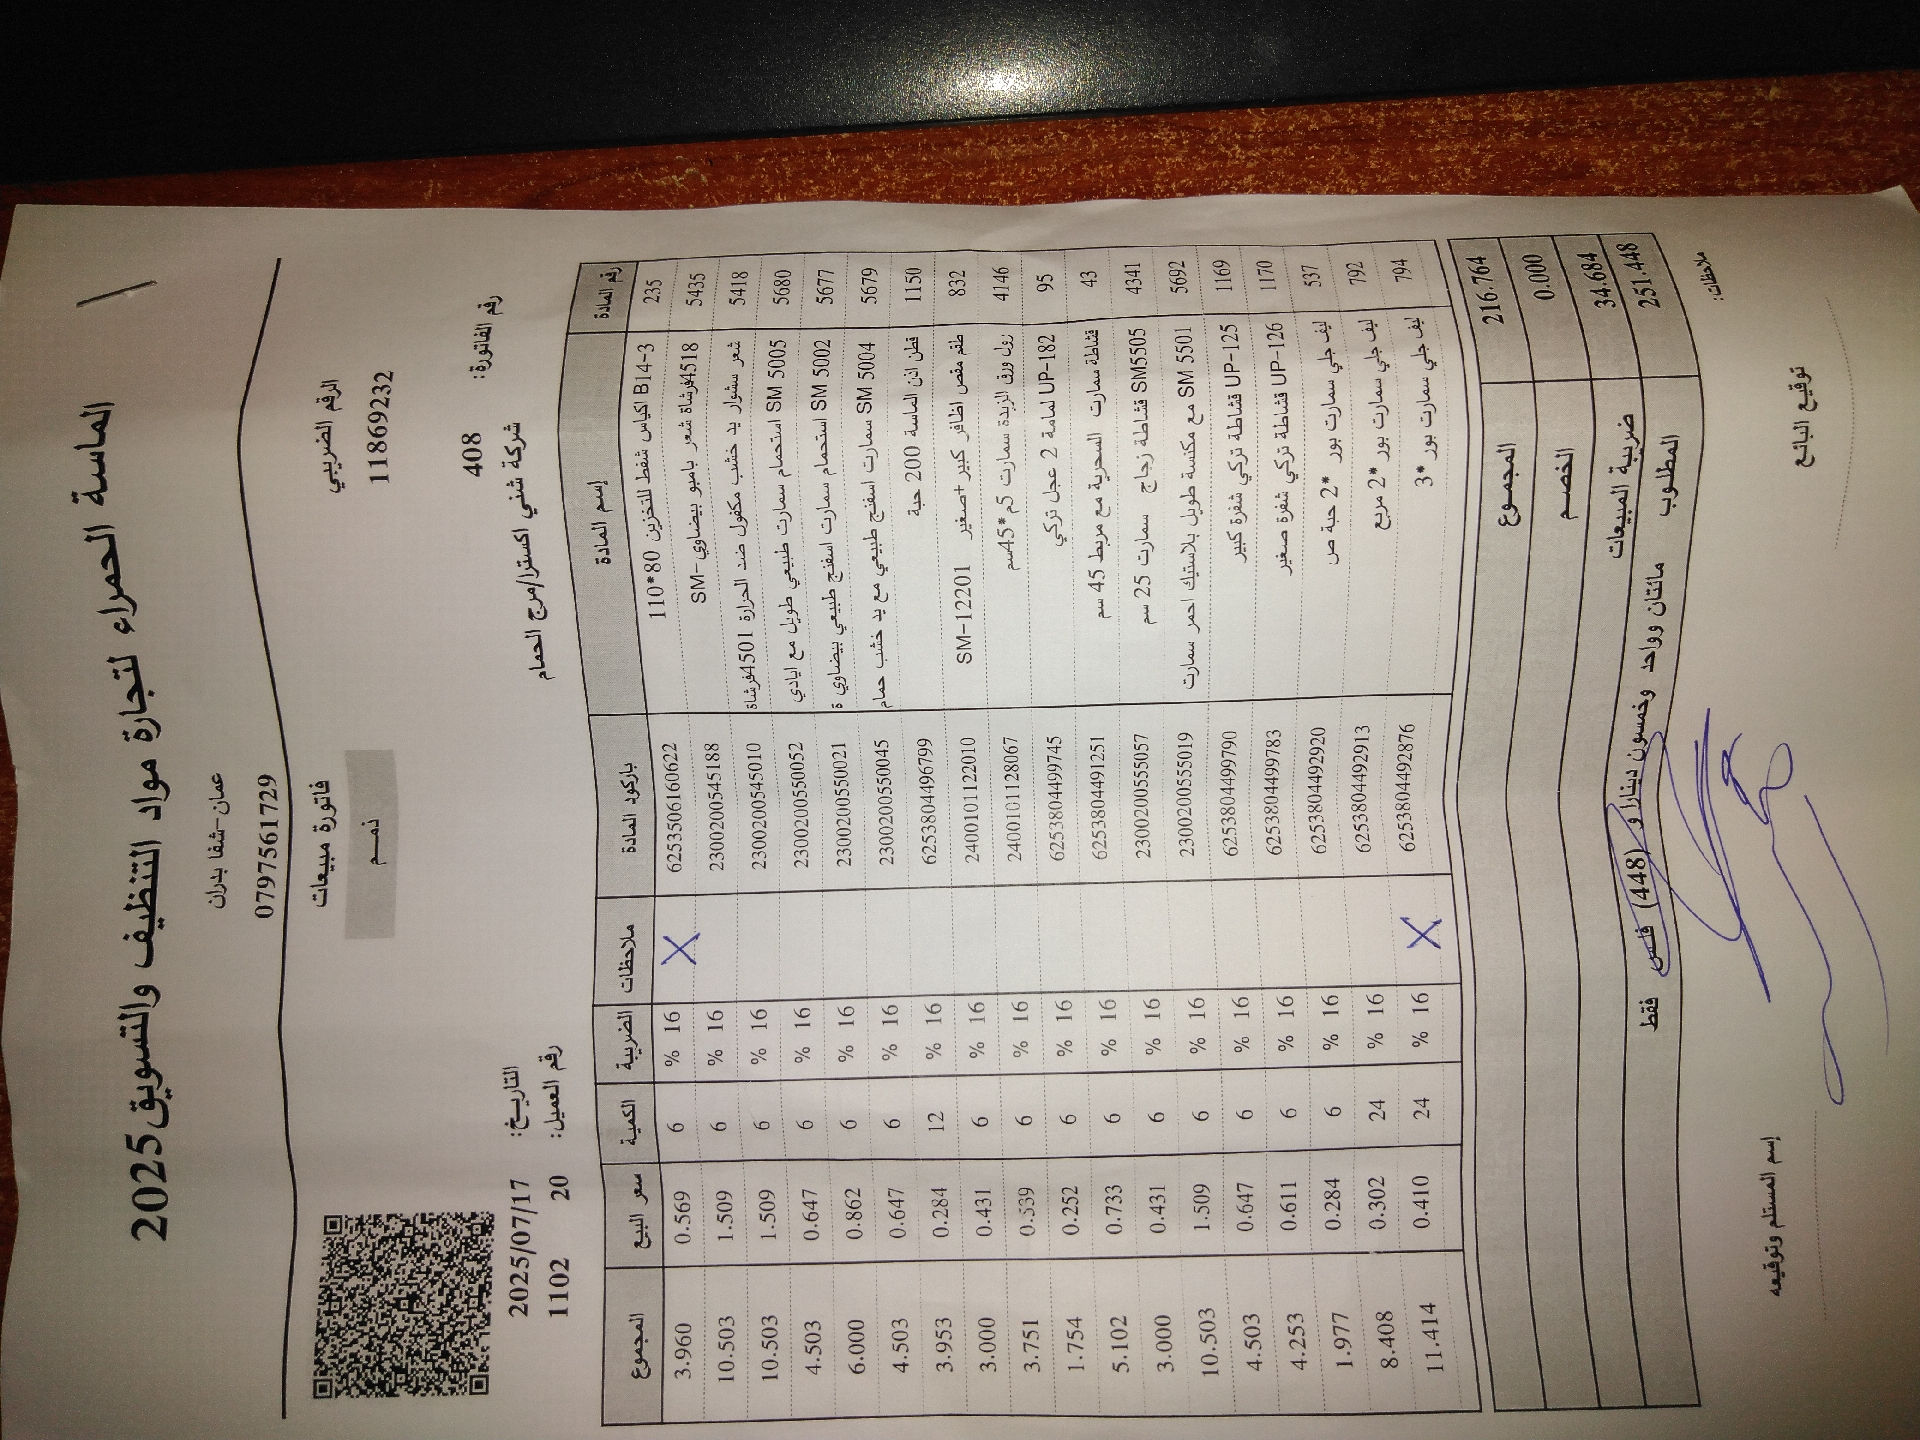 الماسة الحمراء لتجارة مواد التنظيف والتسويق2025
عمان-شفا بدران
0797561729
الرقم الضريبي
11869232
فاتورة مبيعات
ذمم
رقم الفاتورة: 408
التاريخ: 2025/07/17
شركة شني اكسترا/مرج الحمام
رقم العميل: 20 1102
رقم المادة إسم المادة باركود المادة ملاحظات الضريبة الكمية سعر البيع المجموع
235 اكياس شفط للتخزين 80*110 B14-3 6253506160622 X % 16 6 0.569 3.960
5435 فرشاة شعر بامبو بيضاوي-SM4518 2300200545188 % 16 6 1.509 10.503
5418 شعر سشوار يد خشب مكفول ضد الحرارة 4501فرشاة 2300200545010 % 16 6 1.509 10.503
5680 SM 5005 استحمام سمارت طبيعي طويل مع ايادي 2300200550052 % 16 6 0.647 4.503
5677 SM 5002 استحمام سمارت اسفنج طبيعي بيضاوي ة 2300200550021 % 16 6 0.862 6.000
5679 SM 5004 سمارت اسفنج طبيعي مع يد خشب حمام 2300200550045 % 16 6 0.647 4.503
1150 قطن اذن الماسة 200 حبة 6253804496799 % 16 12 0.284 3.953
832 طقم مقص اظافر كبير +صغير SM-12201 2400101122010 % 16 6 0.431 3.000
4146 رول ورق الزبدة سمارت 5م*45سم 2400101128067 % 16 6 0.539 3.751
95 UP-182 لمامة 2 عجل تركي 6253804499745 % 16 6 0.252 1.754
43 قشاطة سمارت السحرية مع مربط 45 سم 6253804491251 % 16 6 0.733 5.102
4341 SM5505 قشاطة زجاج سمارت 25 سم 2300200555057 % 16 6 0.431 3.000
5692 SM 5501 مع مكنسة طويل بلاستيك احمر سمارت 2300200555019 % 16 6 1.509 10.503
1169 UP-125 قشاطة تركي شفرة كبير 6253804499790 % 16 6 0.647 4.503
1170 UP-126 قشاطة تركي شفرة صغير 6253804499783 % 16 6 0.611 4.253
537 ليف جلي سمارت بور *2 حبة ص 6253804492920 % 16 6 0.284 1.977
792 ليف جلي سمارت بور *2 مربع 6253804492913 % 16 24 0.302 8.408
794 ليف جلي سمارت بور *3 6253804492876 X % 16 24 0.410 11.414
216.764 المجموع
0.000 الخصم
34.684 ضريبة المبيعات
251.448 المطلوب مائتان وواحد وخمسون دينارا و (448) فلس فقط
ملاحظات:
توقيع البائع
إسم المستلم وتوقيعه